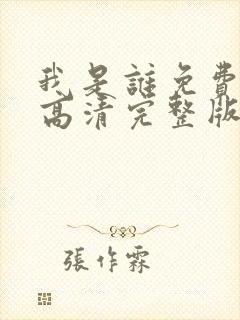 我是誰免費
高清完整版
張作霖